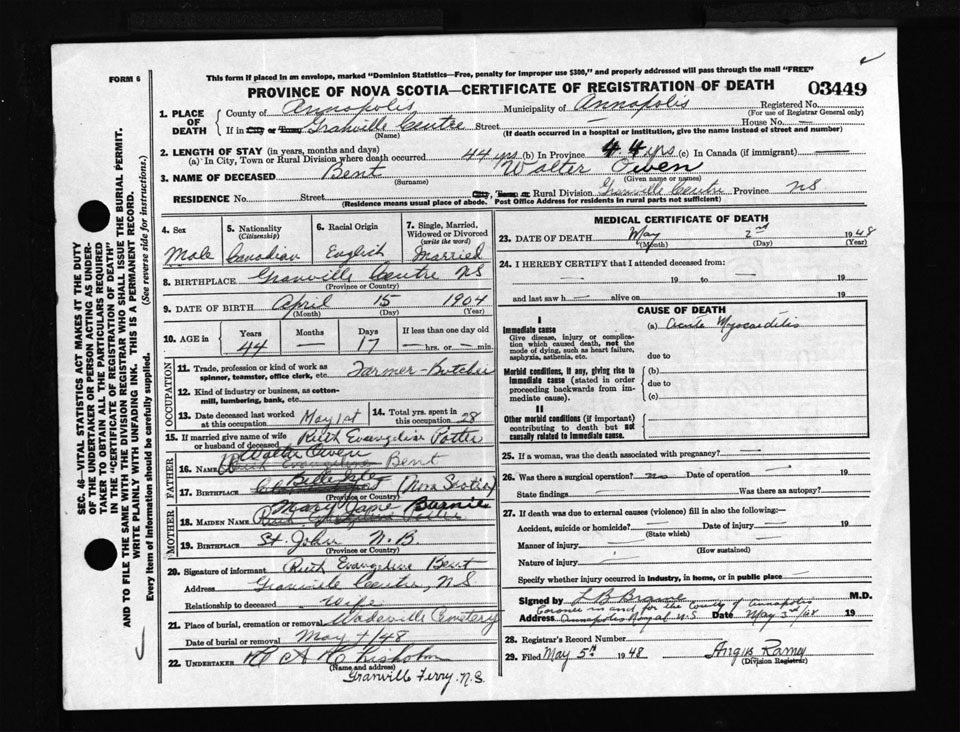 FORM 6
This form if placed in an envelope, marked "Dominion Statistics—Free, penalty for improper use $300," and properly addressed will pass through the mail "FREE"
PROVINCE OF NOVA SCOTIA—CERTIFICATE OF REGISTRATION OF DEATH 03449
1. PLACE OF DEATH County of Annapolis Municipality of Annapolis Registered No.
(For use of Registrar General only)
If in City or Town Granville Centre Street — House No. —
(Name) (If death occurred in a hospital or institution, give the name instead of street and number)
2. LENGTH OF STAY (in years, months and days)
(a) In City, Town or Rural Division where death occurred 44 yrs (b) In Province 44 yrs (c) In Canada (if immigrant) —
3. NAME OF DECEASED Bent Walter Owen
(Surname) (Given name or names)
RESIDENCE No. Street City, Town or Rural Division Granville Centre Province NS
(Residence means usual place of abode. Post Office Address for residents in rural parts not sufficient)
4. Sex 5. Nationality (Citizenship) 6. Racial Origin 7. Single, Married, Widowed or Divorced (write the word)
Male Canadian English Married
8. BIRTHPLACE Granville Centre NS
(Province or Country)
9. DATE OF BIRTH April 15 1904
(Month) (Day) (Year)
10. AGE IN Years Months Days If less than one day old
44 — 17 — hrs. or — min.
OCCUPATION
11. Trade, profession or kind of work as spinner, teamster, office clerk, etc. Farmer-Butcher
12. Kind of industry or business, as cotton-mill, lumbering, bank, etc.
13. Date deceased last worked at this occupation May 1st 14. Total yrs. spent in this occupation 28
15. If married give name of wife or husband of deceased Ruth Evangeline Potter
FATHER
Walter Owen
16. Name Bent
Belle Isle
17. BIRTHPLACE (Nova Scotia)
(Province or Country)
MOTHER
Mary Jane
18. MAIDEN NAME
19. BIRTHPLACE St. John N.B.
(Province or Country)
20. Signature of informant Ruth Evangeline Bent
Address Granville Centre, N.S
Relationship to deceased Wife
21. Place of burial, cremation or removal Wadeville Cemetery
Date of burial or removal May 4/48
22. UNDERTAKER A Chisholm
(Name and address)
Granville Ferry. N.S.
MEDICAL CERTIFICATE OF DEATH
23. DATE OF DEATH May 2nd 1948
(Month) (Day) (Year)
24. I HEREBY CERTIFY that I attended deceased from:
— 19 to — 19
and last saw h— alive on — 19
CAUSE OF DEATH
I
Immediate cause (a) Acute Myocarditis
Give disease, injury or complication which caused death, not the mode of dying, such as heart failure, asphyxia, asthenia, etc.
due to
Morbid conditions, if any, giving rise to immediate cause (stated in order proceeding backwards from immediate cause).
(b)
due to
(c)
II
Other morbid conditions (if important) contributing to death but not causally related to immediate cause.
25. If a woman, was the death associated with pregnancy? —
26. Was there a surgical operation? no Date of operation — 19
State findings — Was there an autopsy? —
27. If death was due to external causes (violence) fill in also the following:
Accident, suicide or homicide? — Date of injury — 19
(State which)
Manner of injury —
(How sustained)
Nature of injury —
Specify whether injury occurred in industry, in home, or in public place —
Signed by L B Braine M.D.
Coroner in and for the County of Annapolis
Address Annapolis Royal N.S Date May 3rd/48 19
28. Registrar's Record Number
29. Filed May 5th 1948 Ramey
(Division Registrar)
SEC. 46—VITAL STATISTICS ACT MAKES IT THE DUTY
OF THE UNDERTAKER OR PERSON ACTING AS UNDER-
TAKER TO OBTAIN ALL THE PARTICULARS REQUIRED
IN THE "CERTIFICATE OF REGISTRATION OF DEATH"
AND TO FILE THE SAME WITH THE DIVISION REGISTRAR WHO SHALL ISSUE THE BURIAL PERMIT.
WRITE PLAINLY WITH UNFADING INK. THIS IS A PERMANENT RECORD.
Every item of information should be carefully supplied. (See reverse side for instructions.)